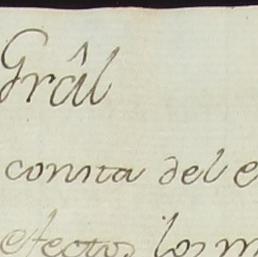 Grâl
consta del e
efecto, los m